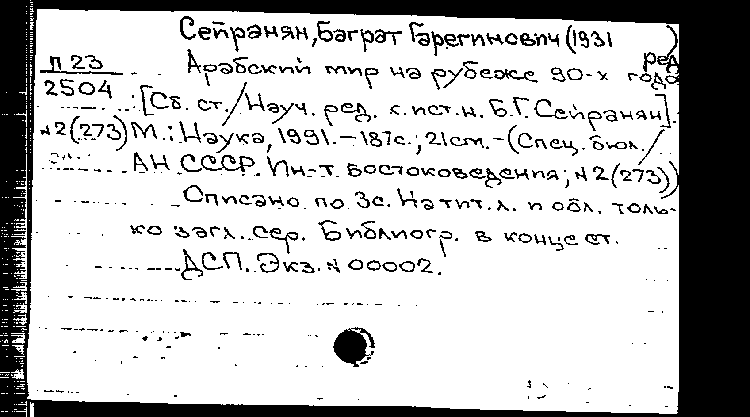 Сейранян, Баграт Гарегинович (1931 )
ред.
П 23 Арабский мир на рубеже 90-х годо
2504 : [Сб. ст. / Науч. ред. к. ист. н. Б.Г. Сейранян].
N2(273) М.: Наука, 1991. - 187с.; 21cm. - (Спец. бюл. /
АН СССР. Ин-т востоковедения; N2(273))
Описано по 3с. На тит. л. и обл. толь-
ко загл. сер. Библиогр. в конце ст.
ДСП. Экз. N 00002.